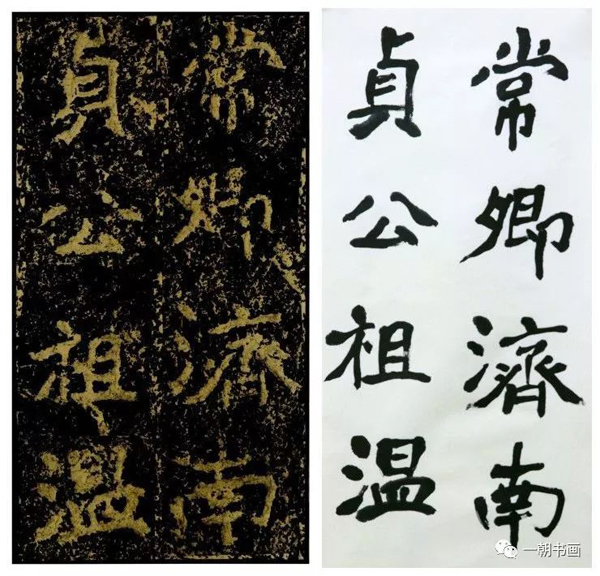 常卿濟南
貞公祖溫
常卿濟南
貞公祖温
一朝书画